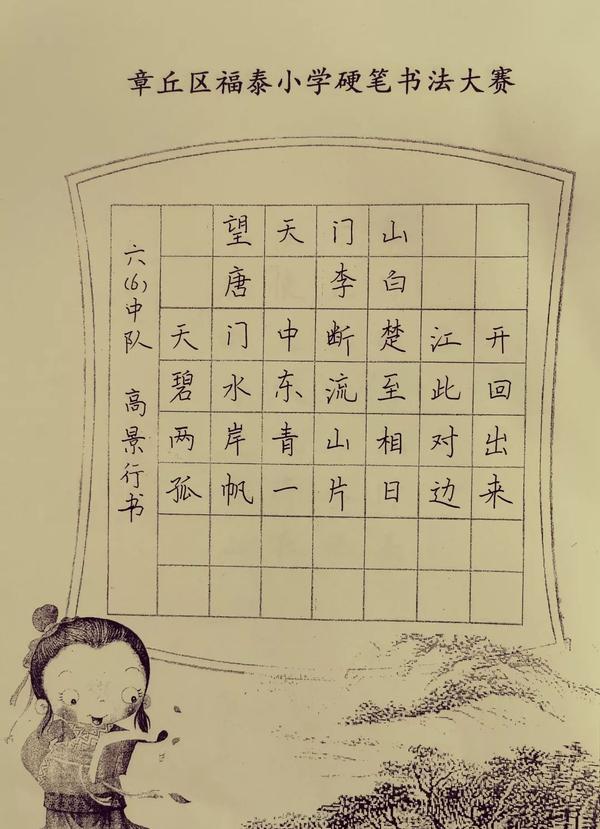 章丘区福泰小学硬笔书法大赛
望天门山
唐 李白
天门中断楚江开
碧水东流至此回
两岸青山相对出
孤帆一片日边来
六(6)中队 高景行书